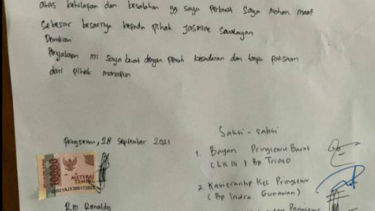 atas kekilapan dan kesalahan yg saya perbuat saya mohon maaf
sebesar besarnya kepada pihak Jasmine
Demikian
Pernyataan ini saya buat dengan penuh kesadaran dan tanpa paksaan
dari pihak manapun
Pringsewu, 28 September 2021
Saksi - saksi
1. Bayan Pringsewu Barat
(LK III) Bp Triono
2. Kec Pringsewu
(Bp Indra Gunawan)
10000
METERAI
TEMPEL